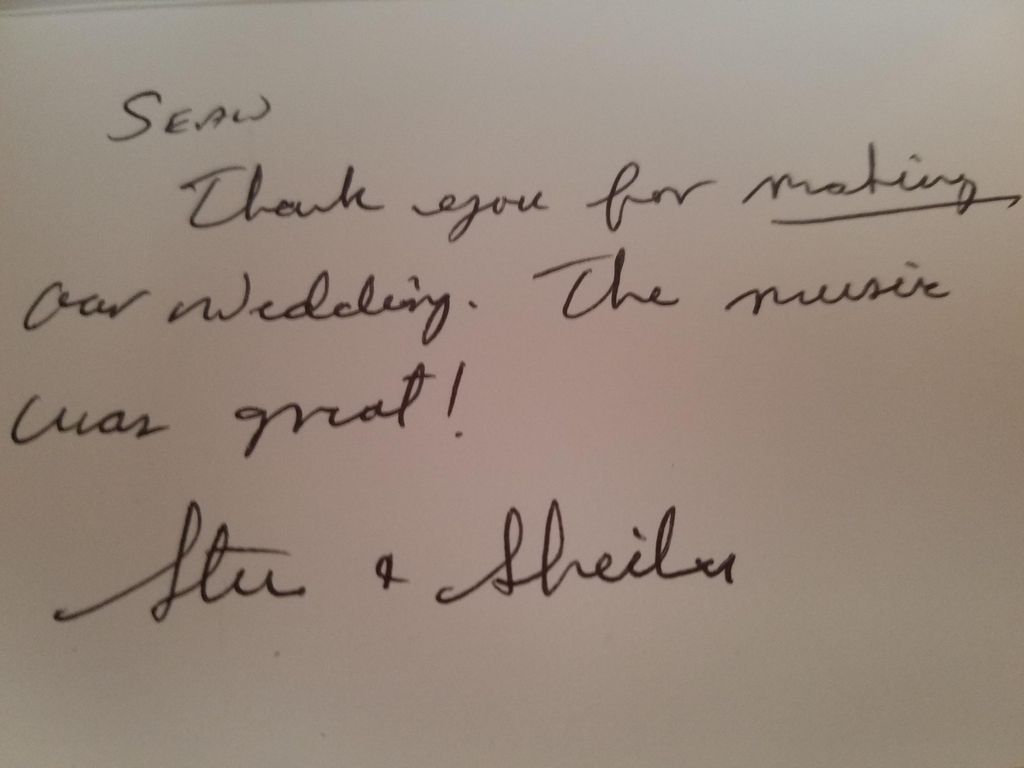 SEAN
Thank you for making
our wedding. The music
was great!
Stu & Sheila